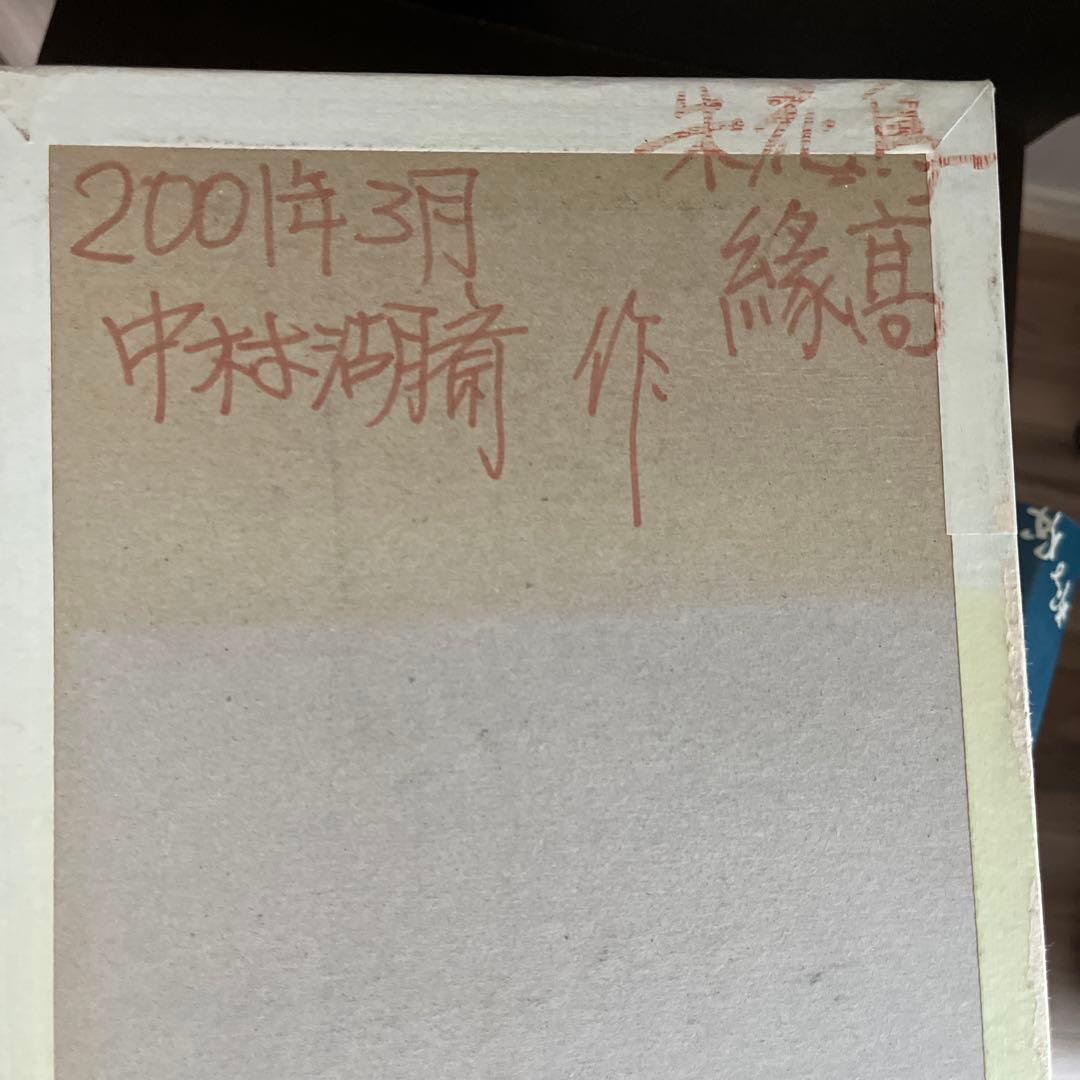 朱花鳥
縁高
2001年3月
中村湖 作